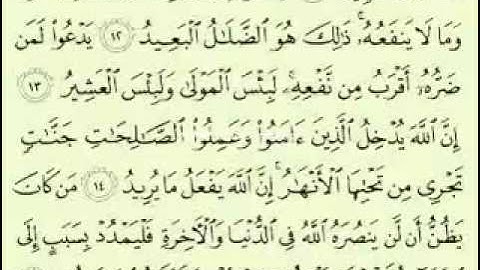 وَمَا لَا يَنفَعُهُۥ ۚ ذَٰلِكَ هُوَ ٱلضَّلَٰلُ ٱلْبَعِيدُ ١٢ يَدْعُوا۟ لَمَن
ضَرُّهُۥٓ أَقْرَبُ مِن نَّفْعِهِۦ ۚ لَبِئْسَ ٱلْمَوْلَىٰ وَلَبِئْسَ ٱلْعَشِيرُ ١٣
إِنَّ ٱللَّهَ يُدْخِلُ ٱلَّذِينَ ءَامَنُوا۟ وَعَمِلُوا۟ ٱلصَّٰلِحَٰتِ جَنَّٰتٍ
تَجْرِى مِن تَحْتِهَا ٱلْأَنْهَٰرُ ۚ إِنَّ ٱللَّهَ يَفْعَلُ مَا يُرِيدُ ١٤ مَن كَانَ
يَظُنُّ أَن لَّن يَنصُرَهُ ٱللَّهُ فِى ٱلدُّنْيَا وَٱلْـَٔاخِرَةِ فَلْيَمْدُدْ بِسَبَبٍ إِلَى